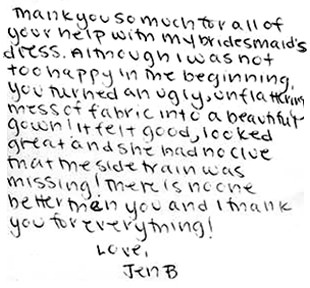 Thank you so much for all of
your help with my bridesmaid's
dress. Although I was not
too happy in the beginning,
you turned an ugly, unflattering
mess of fabric into a beautiful
gown! It felt good, looked
great and she had no clue
that the side train was
missing! There is no one
better then you and I thank
you for everything!
Love,
Jen B